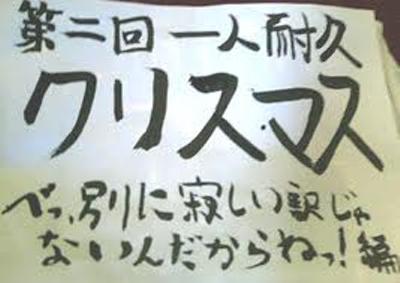 第二回一人耐久
クリスマス
べっ、別に寂しい訳じゃ
ないんだからねっ!編